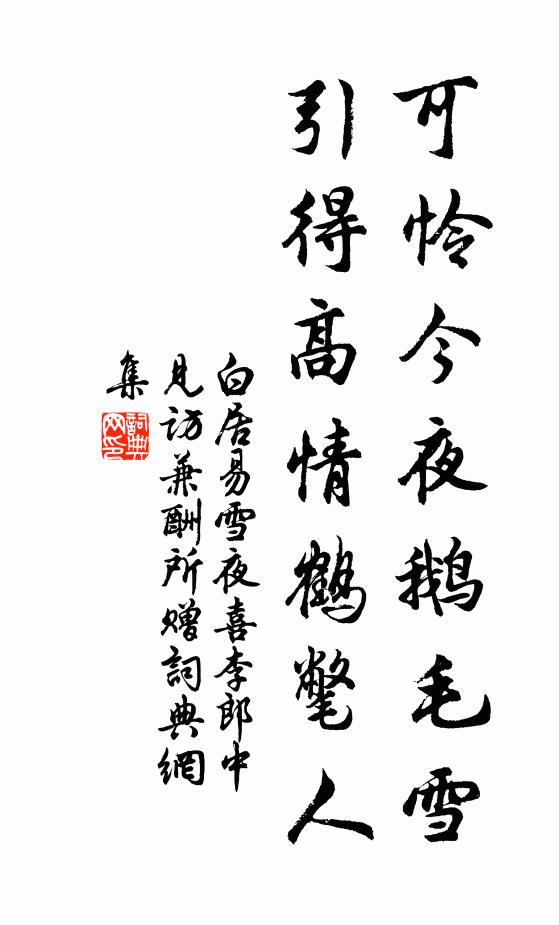 可怜今夜鹅毛雪
引得高情鶴氅人
白居易雪夜喜李郎中
見訪兼酬所贈詞典網
集
詞典
网印